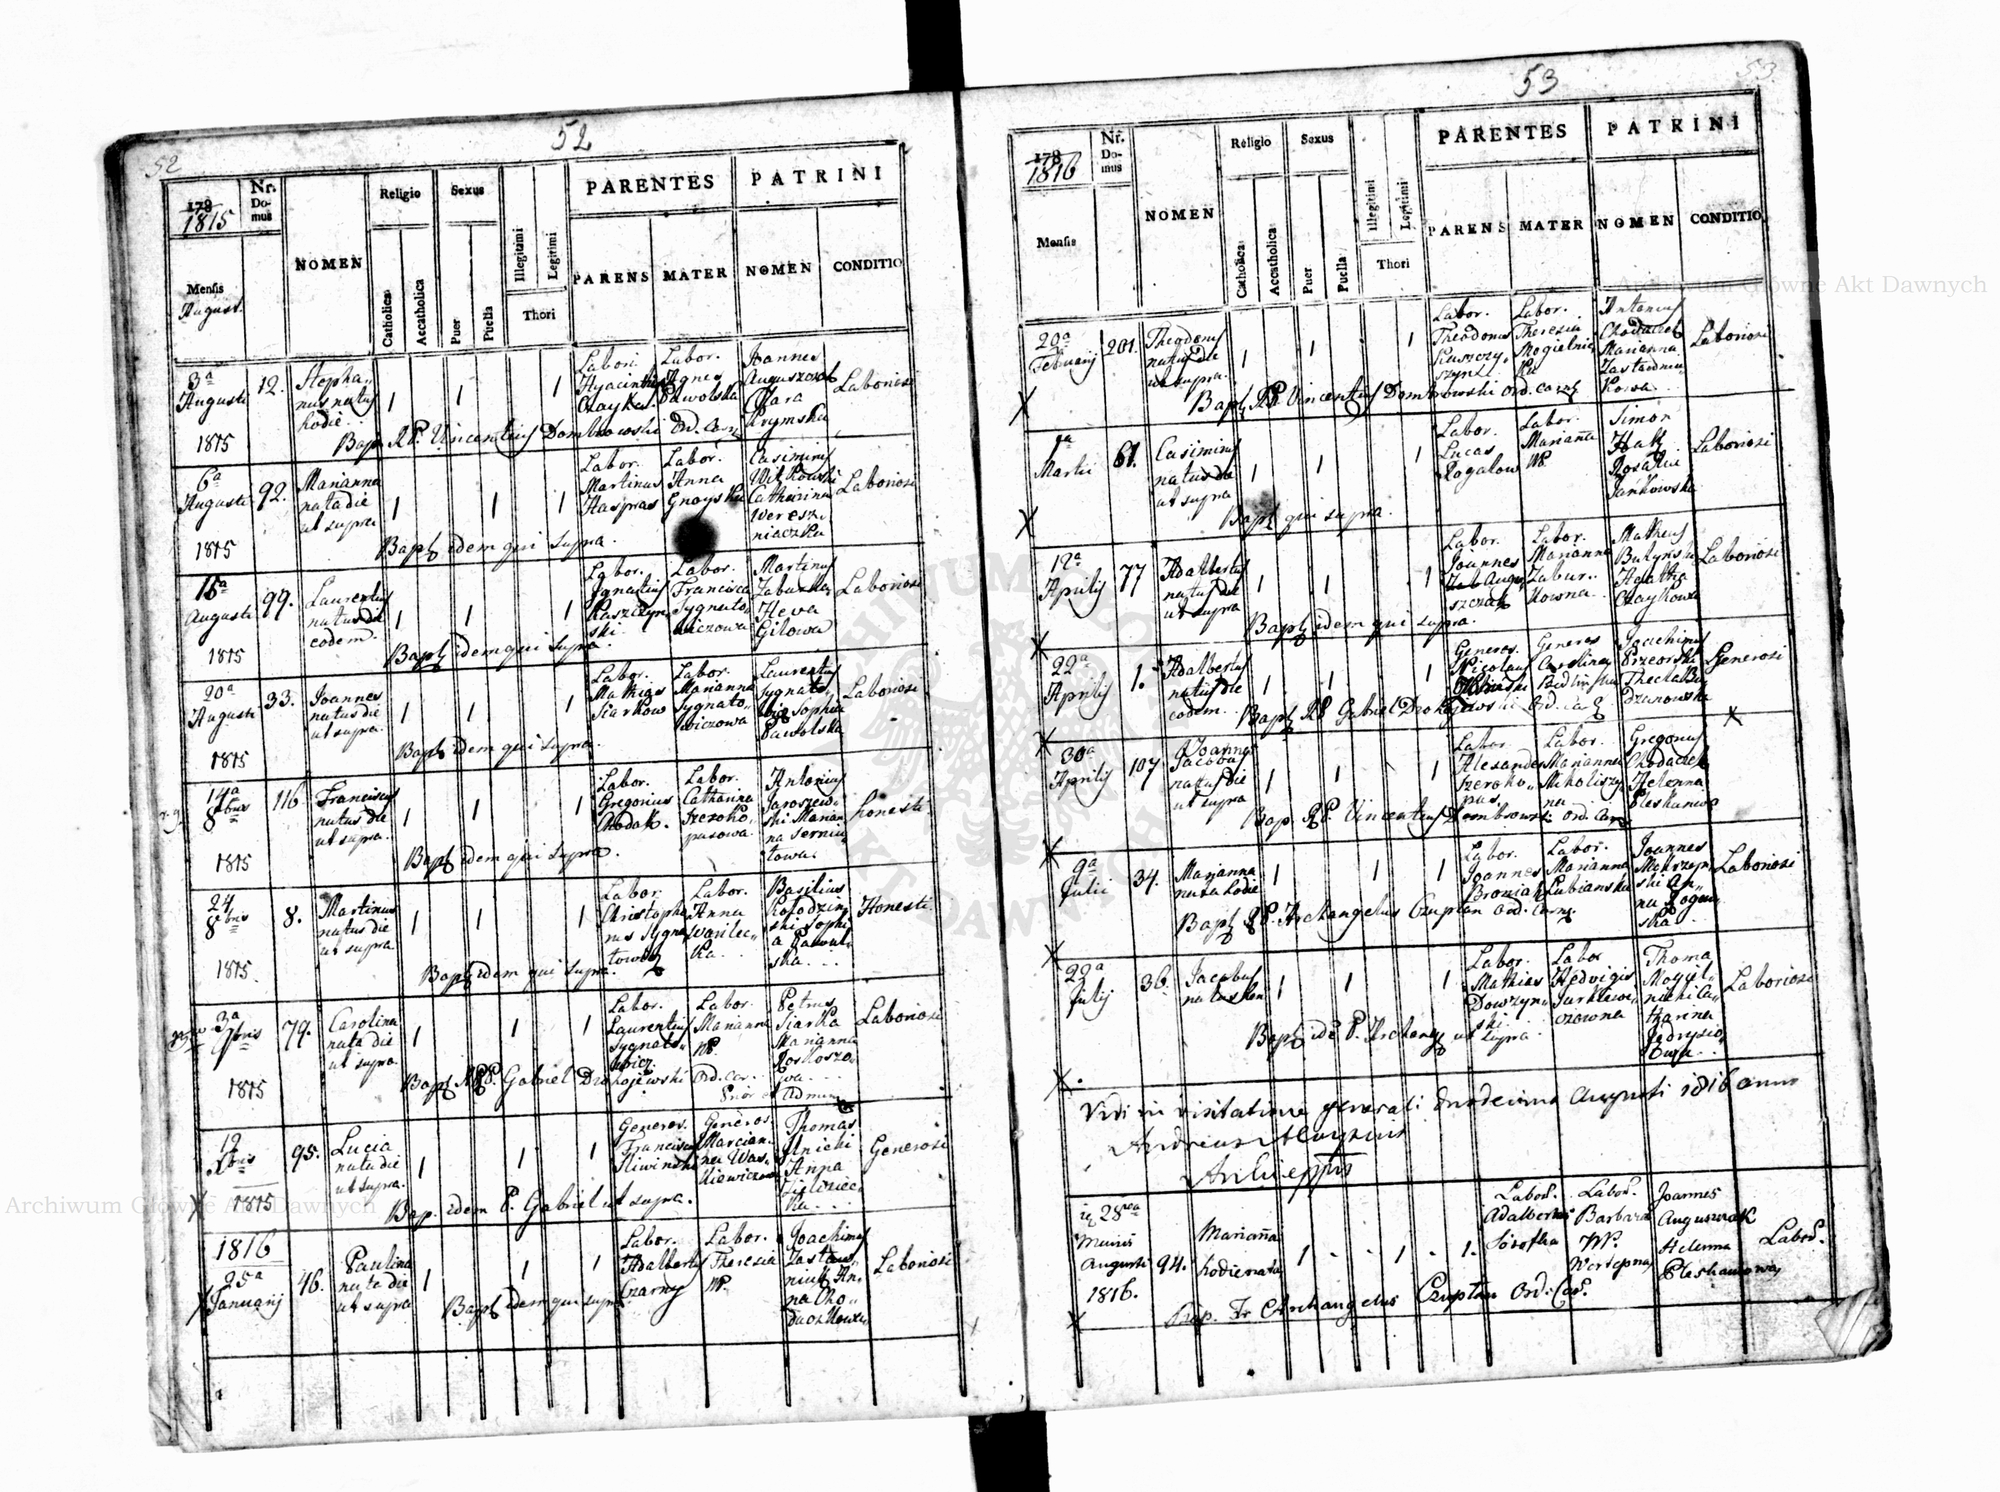 52
52
178
1815
Nr.
Do-
mus
NOMEN
Religio
Sexus
Illegitimi
Legitimi
PARENTES
PATRINI
Mensis
August.
Catholica
Accatholica
Puer
Puella
Thori
PARENS
MATER
NOMEN
CONDITIO
3a
Augusti
1815
12.
Stepha„
nus natus
hodie.
1
1
1
Labori.
Hyacinthus
Czayka.
Labor.
Agnes
Pawolska
Joannes
Auguszczak
Clara
Krymska
Laboriosi
Bapt RP. Vincentius Dombrowski Ord. Carm
6a
Augusti
1815
92.
Marianna
nata die
ut supra
1
1
1
Labor.
Martinus
Haspras
Labor.
Anna
Gnoyska
Casimirus
Witkowski
Catharina
Weresz„
niaczka
Laboriosi
Bapt idem qui supra.
Augusti
1815
99.
Laurentius
natus die
eodem.
1
1
1
Labor.
Ignatius
Raszczyn„
ski.
Labor.
Francisca
Sygnato„
wiczowa
Martinus
Zaburski
Heva
Gilowa
Laboriosi
Bapt idem qui supra.
20a
Augusti
1815
33.
Joannes
natus die
ut supra.
1
1
1
Labor.
Mathias
Siarkow
Labor.
Marianna
Sygnato„
wiczowa
Laurentius
Sygnato„
wicz Sophia
Pawolska
Laboriosi
Bapt idem qui supra.
14a
8bris
1815
116
Franciscus
natus die
ut supra.
1
1
1
Labor.
Gregorius
Chodak.
Labor.
Catharina
Szeroko„
pasowa.
Antonius
Jaroszew„
ski Marian„
na Serniu„
towa.
honesti.
Bapt idem qui supra.
24
8bris
1815
8.
Martinus
natus die
ut supra
1
1
1
Labor.
Christopho„
rus Sygna„
towicz
Labor.
Anna
Wasilec„
ka.
Basilius
Kołodzin„
ski Sophi„
a Pawol„
ska.
Honesti.
Bapt idem qui supra.
3a
1815
79.
Carolina
nata die
ut supra.
1
1
1
Labor.
Laurentius
Sygnato„
wicz.
Labor.
Marianna
NP.
Petrus
Siarka
Marianna
Roskoszo„
wa.
Laboriosi
Bapt ARP. Gabriel Drohojewski Ord. Car.
Prior et Admin
12
1815
95.
Lucia
nata die
ut supra.
1
1
1
Generos.
Franciscus
Sliwinski
Generos.
Marcian„
na Was„
kiewiczowa
Thomas
Ilnicki
Anna
Zielonec„
ka.
Generosi
Bap. idem P. Gabriel ut supra.
1816
25a
Januarij
46.
Paulina
nata die
ut supra
1
1
1
Labor.
Adalbertus
Czarny
Labor.
Theresia
NP.
Joachimus
Zastaw„
niuk An„
na Cho„
daczkowa
Laboriosi
Bapt idem qui supra
53
53.
178
1816
Nr.
Do-
mus
NOMEN
Religio
Sexus
Illegitimi
Legitimi
PARENTES
PATRINI
Mensis
Catholica
Accatholica
Puer
Puella
Thori
PARENS
MATER
NOMEN
CONDITIO
20a
Februarij
201.
natus die
ut supra.
1
1
1
Labor.
Theodorus
Labor.
Theresia
Mogielnic„
ka
Antonius
Chodaczek
Marianna
Zastawna
Laboriosi
Bapt RP. Vincentius Dombrowski Ord. Carm
Martii
61.
Casimirus
natus die
ut supra
1
1
1
Labor.
Lucas
Rogalow
Labor.
Marianna
NP.
Simon
Hak
Rosalia
Jankowska
Laboriosi
Bapt qui supra.
12a
Aprilij
77
Adalbertus
natus die
ut supra
1
1
1
Labor.
Joannes
Augu„
szczak
Labor.
Marianna
Zabur„
kowna.
Matheus
Agatha
Czaykowa
Laboriosi
Bapt idem qui supra.
22a
Aprilij
1.
Adalbertus
natus die
eodem.
1
1
1
Generos.
Nicolaus
Generos
Carolina
Joachimus
Thecla
Generosi
Bapt RP Gabriel Drohojewski Ord. Car
30a
Aprilij
107
Joannes
Jacobus
natus die
ut supra
1
1
1
Labor.
Alexander
Szeroko„
pas.
Labor.
Marianna
Mikoliszy„
na
Gregorius
Chodaczek
Helenna
Pleskanowa
Bap. RP. Vincentius Dombrowski Ord. Carm
9a
Julii
34.
Marianna
nata hodie
1
1
1
Labor.
Joannes
Broniak
Labor.
Marianna
Lubianska
Joannes
Makrzyn„
ski An„
na Rogow„
ska.
Laboriosi
Bapt RP. Archangelus Czuplan Ord. Carm.
22a
Julij
36.
Jacobus
1
1
1
Labor.
Mathias
Dowzyn„
ski.
Labor
Hedvigis
Jurkiewi„
czowna
Thoma
Mogyl„
nicki Ca„
tharina
Laboriosi
Bapt ide P. Archang ut supra.
Vidi in visitatione generali duodecima Augusti 1816 anno
Andreas Aloysius
ArchiEppus
28va
Mensis
Augusti
1816.
94.
Marianna
hodie nata
1
1
1.
Labos.
Adalbertus
Labos.
Barbara
NP.
Joannes
Auguszczak
Helenna
Pleskanowa
Labos.
Bap. Fr Archangelus Czuplan Ord. Car.
Archiwum Główne Akt Dawnych
Archiwum Główne Akt Dawnych
ARCHIWUM GŁÓWNE AKT DAWNYCH